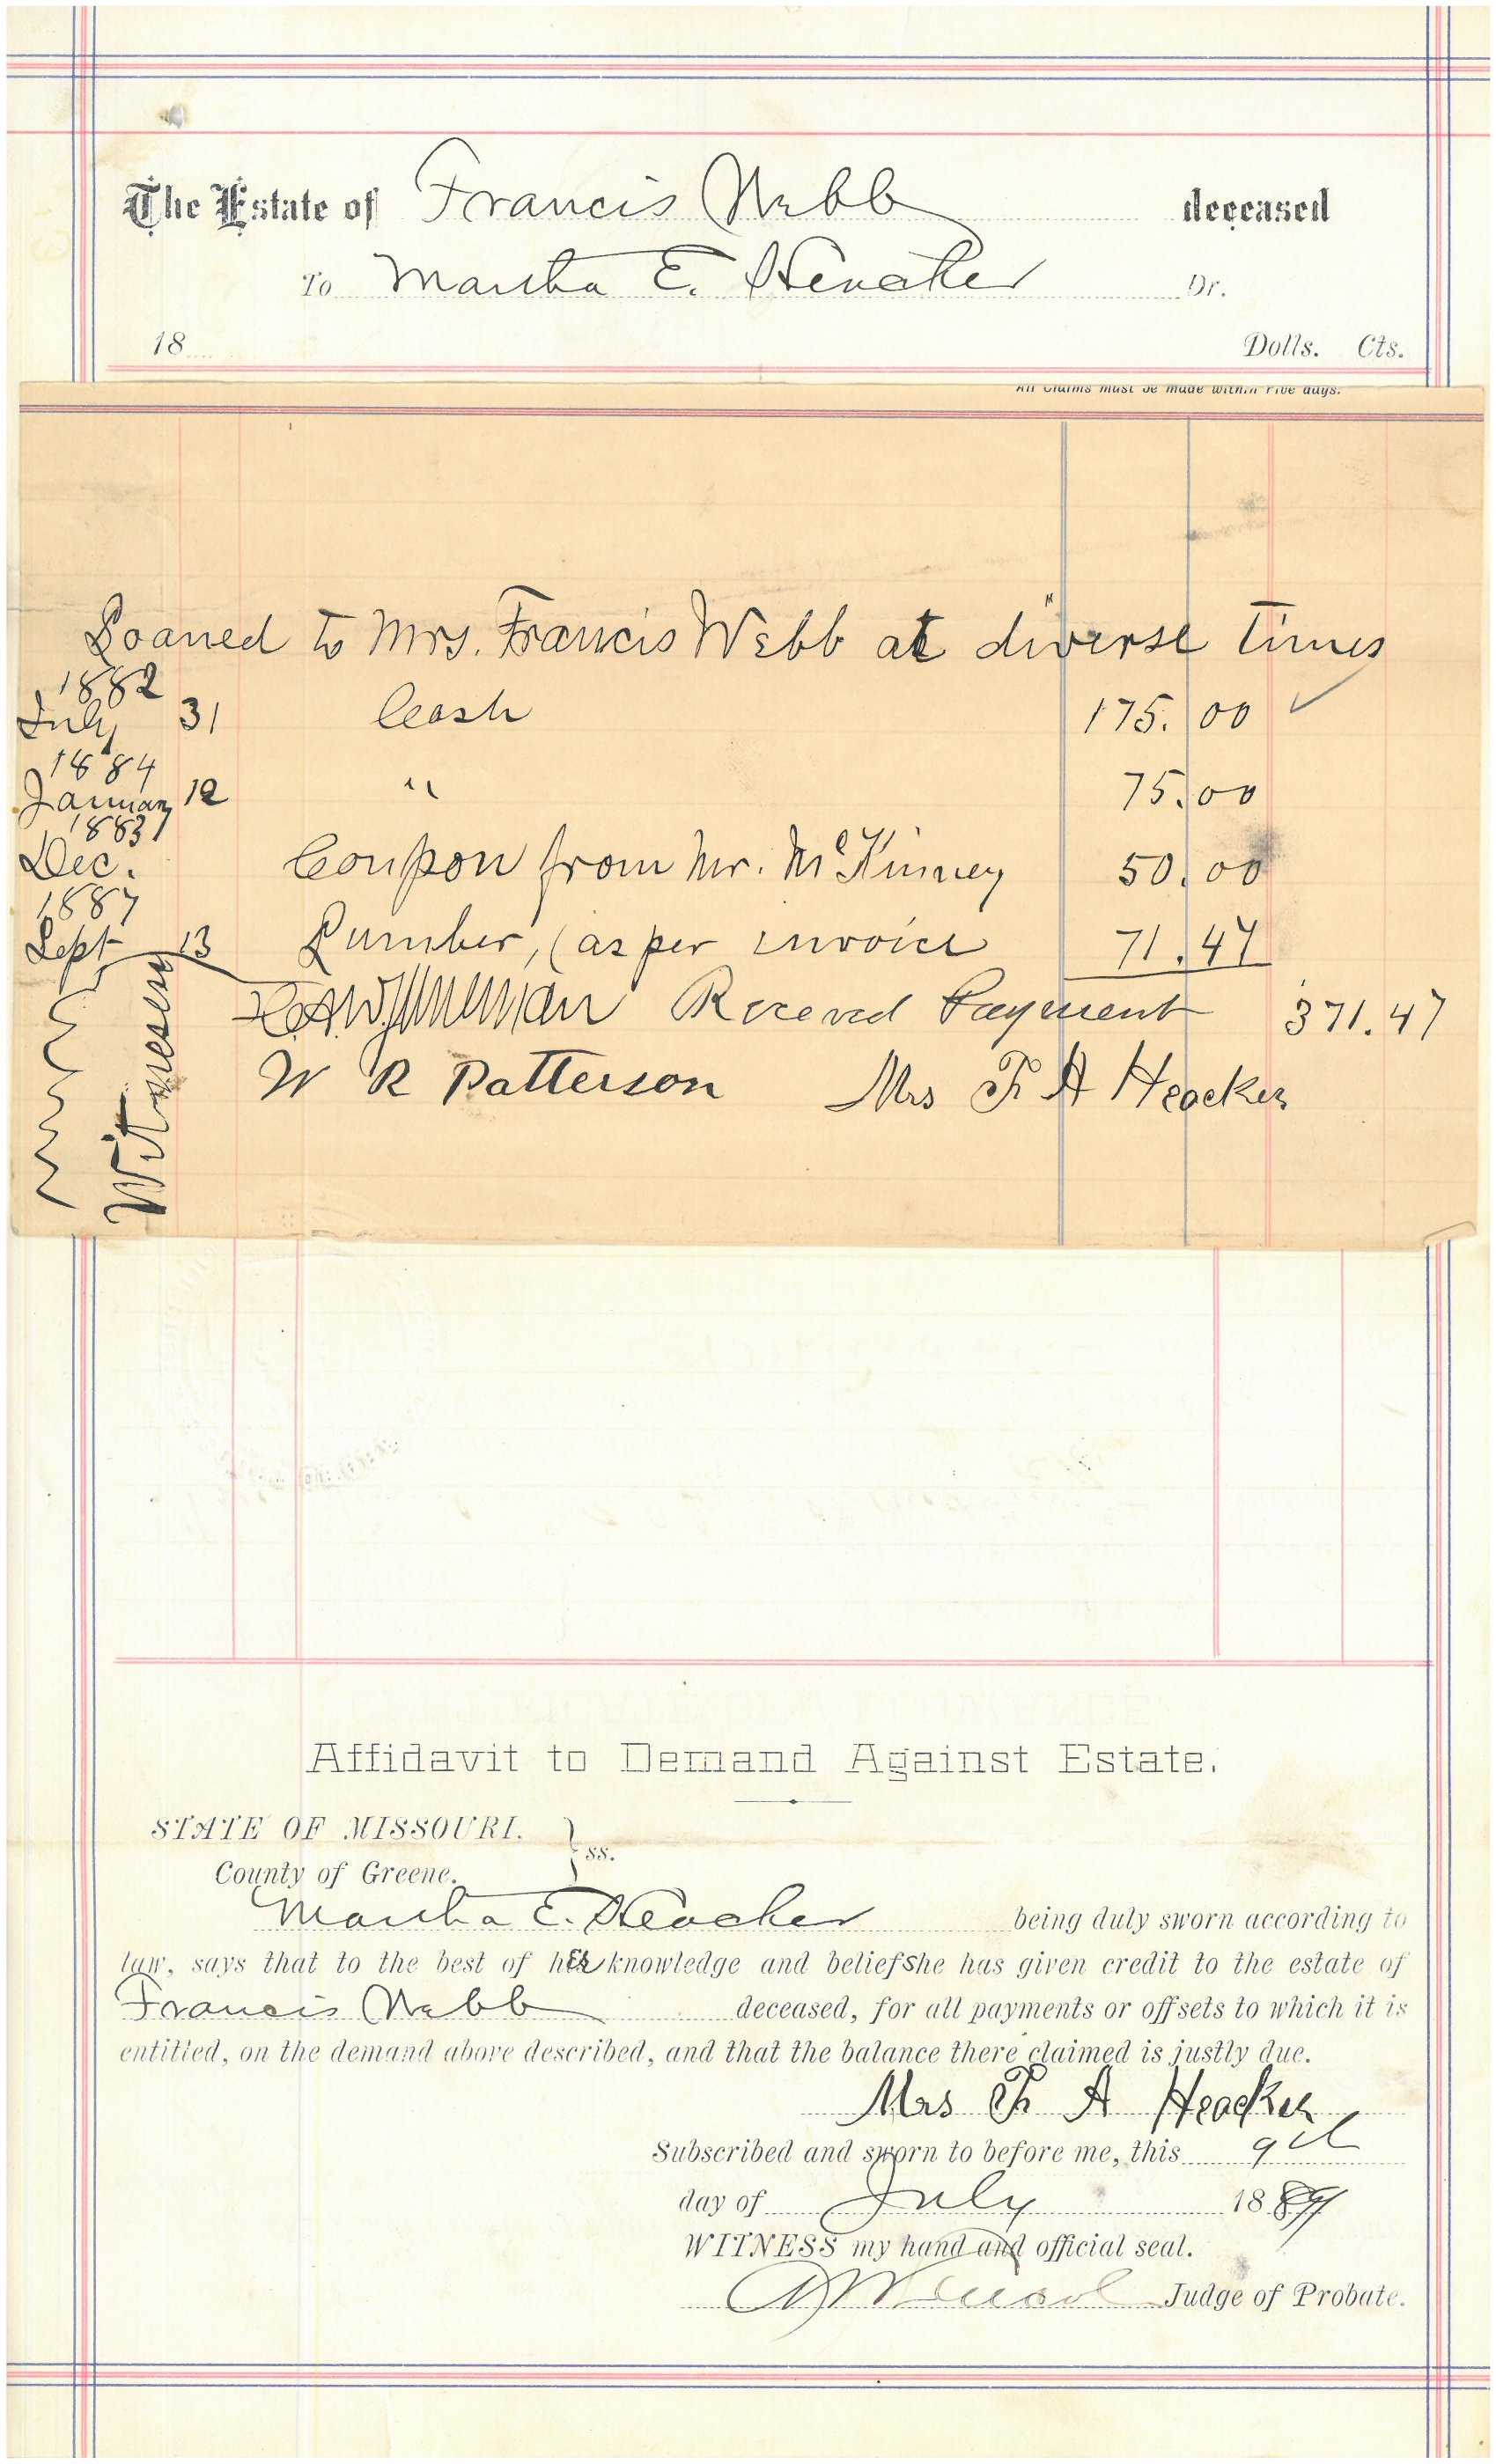 The Estate of Francis Webb deceased
To Martha E. Heacker Dr.
18 Dolls. Cts.
All Claims must be made within Five days.
Loaned to Mrs. Francis Webb at diverse times
1882
July 31 Cash 175.00 ✓
1884
January 12 " 75.00
1883
Dec. Coupon from Mr. McKinney 50.00
1887
Sept 13 Lumber, (as per invoice 71.47
Receved Payment 371.47
W R Patterson Mrs F A Heacker
Witnesess
Affidavit to Demand Against Estate.
STATE OF MISSOURI. } ss.
County of Greene.
Martha E. Heacker being duly sworn according to
law, says that to the best of her knowledge and belief She has given credit to the estate of
Francis Webb deceased, for all payments or offsets to which it is
entitled, on the demand above described, and that the balance there claimed is justly due.
Mrs F A Heacker
Subscribed and sworn to before me, this 9th
day of July 1889
WITNESS my hand and official seal.
Judge of Probate.